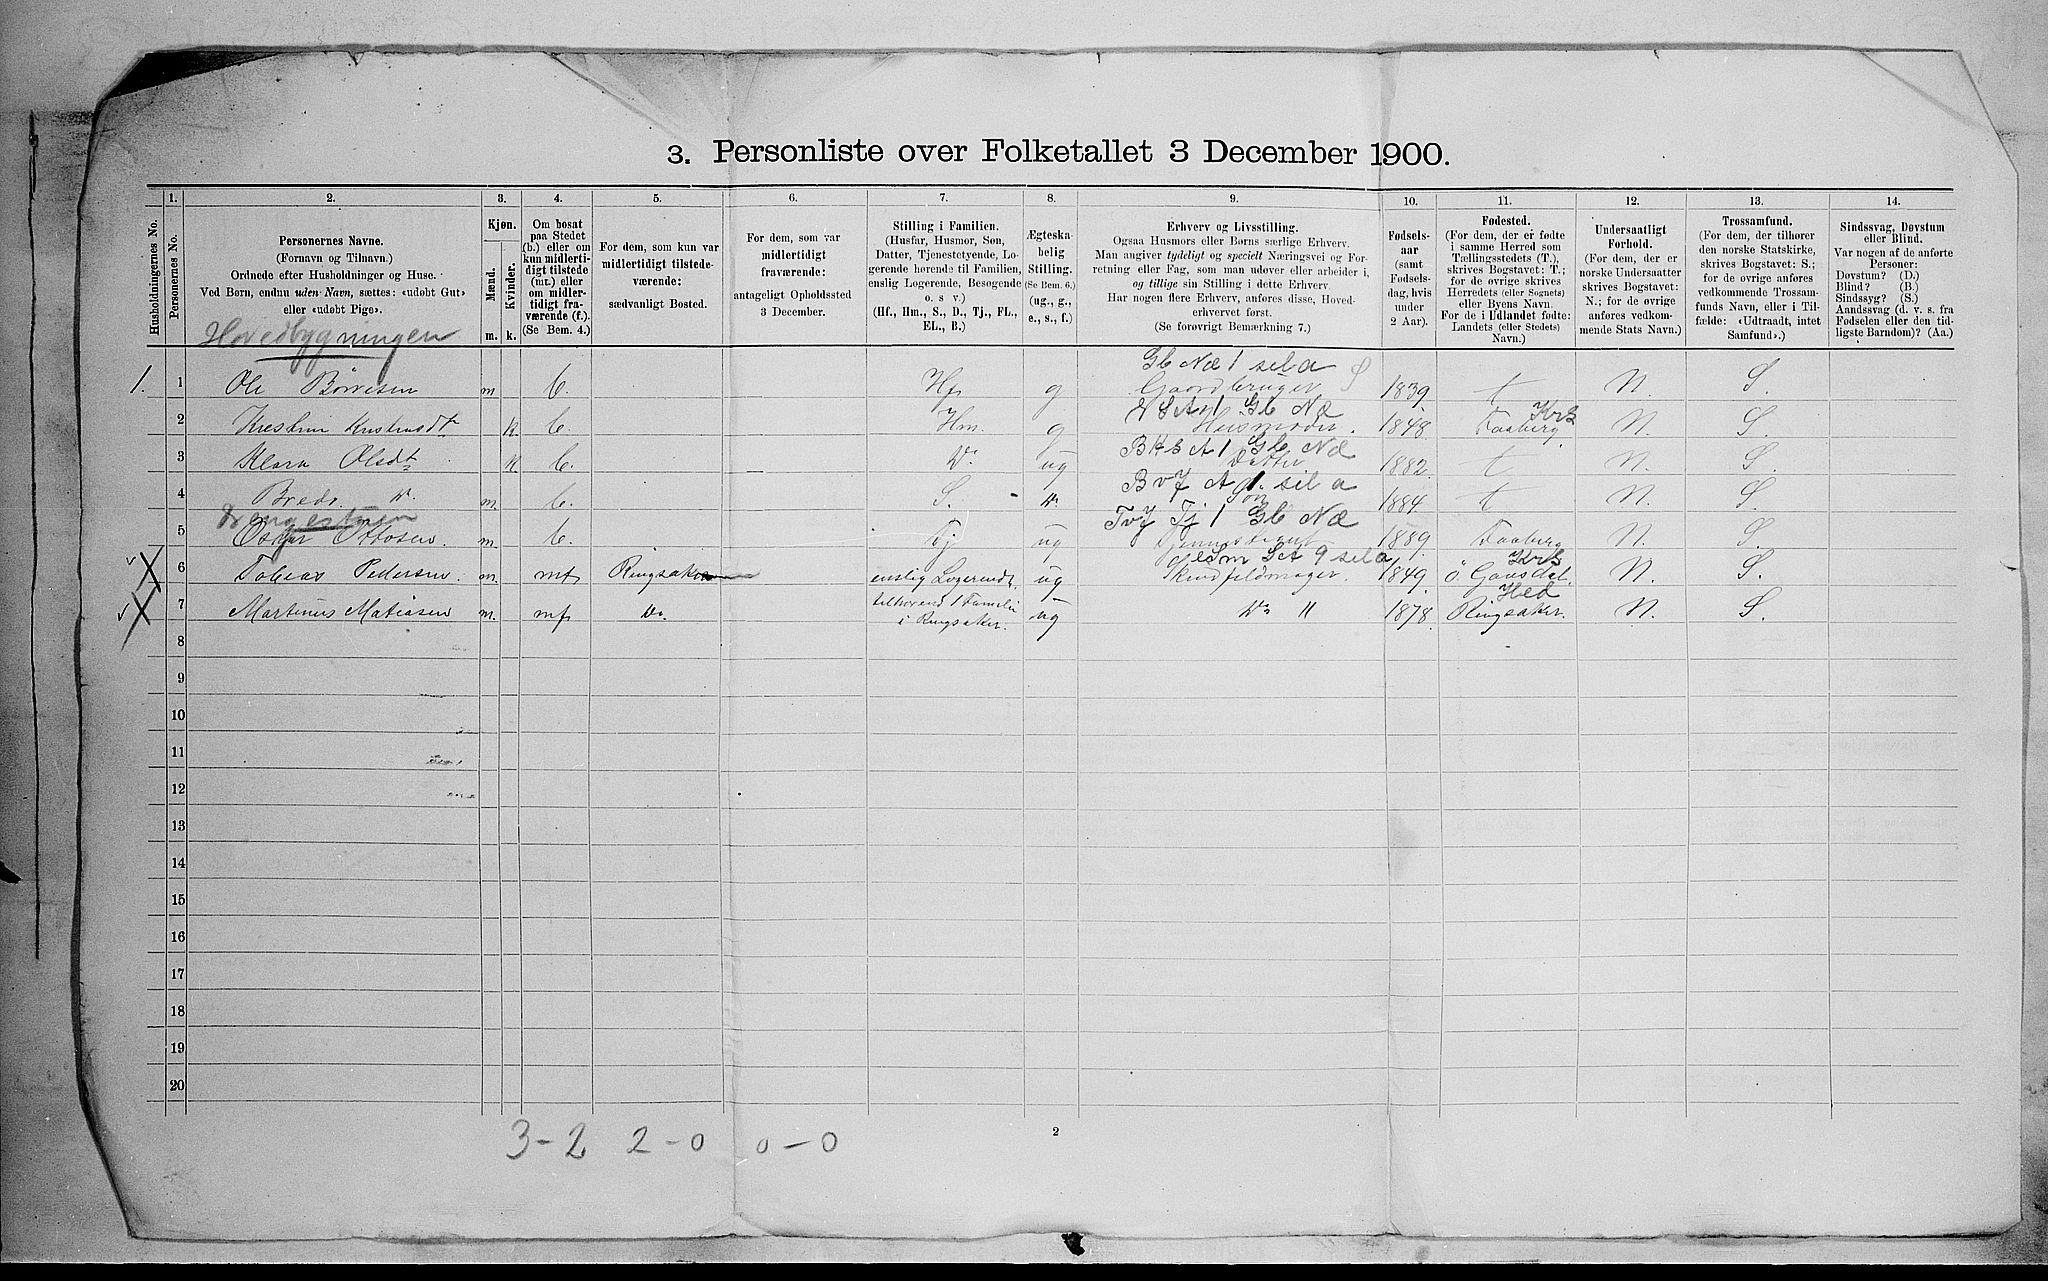 3. Personliste over Folketallet 3 December 1900.
1. 2. 3. 4. 5. 6. 7. 8. 9. 10. 11. 12. 13. 14.
Husholdningernes No.
Personernes No.
Personernes Navne.
(Fornavn og Tilnavn.)
Ordnede efter Husholdninger og Huse.
Ved Børn, endnu uden Navn, sættes: «udøbt Gut»
eller «udøbt Pige».
Hovedbygningen
Kjøn.
Mænd.
Kvinder.
m. k.
Om bosat
paa Stedet
(b.) eller om
kun midlerti-
digt tilstede
(mt.) eller
om midler-
tidigt fra-
værende (f.).
(Se Bem. 4.)
For dem, som kun var
midlertidigt tilstede-
værende:
sædvanligt Bosted.
For dem, som var
midlertidigt
fraværende:
antageligt Opholdssted
3 December.
Stilling i Familien.
(Husfar, Husmor, Søn,
Datter, Tjenestetyende, Lo-
gerende hørende til Familien,
enslig Logerende, Besøgende
o. s v.)
(Hf., Hm., S., D., Tj., FL.,
EL., B.)
Ægteska-
belig
Stilling.
(Se Bem. 6.)
(ug., g.,
e., s., f.)
Erhverv og Livsstilling.
Ogsaa Husmors eller Børns særlige Erhverv.
Man angiver tydeligt og specielt Næringsvei og For-
retning eller Fag, som man udøver eller arbeider i,
og tillige sin Stilling i dette Erhverv.
Har nogen flere Erhverv, anføres disse, Hoved-
erhvervet først.
(Se forøvrigt Bemærkning 7.)
Fødsels-
aar
(samt
Fødsels-
dag, hvis
under
2 Aar).
Fødested.
(For dem, der er fødte
i samme Herred som
Tællingsstedets (T.),
skrives Bogstavet: T.;
for de øvrige skrives
Herredets (eller Sognets)
eller Byens Navn.
For de i Udlandet fødte:
Landets (eller Stedets)
Navn.)
Undersaatligt
Forhold.
(For dem, der er
norske Undersaatter
skrives Bogstavet:
N.; for de øvrige
anføres vedkom-
mende Stats Navn.)
Trossamfund.
(For dem, der tilhører
den norske Statskirke,
skrives Bogstavet: S.;
for de øvrige anføres
vedkommende Trossam-
funds Navn, eller i Til-
fælde: «Udtraadt, intet
Samfund».)
Sindssvag, Døvstum
eller Blind.
Var nogen af de anførte
Personer:
Døvstum? (D.)
Blind? (B.)
Sindssyg? (S.)
Aandssvag (d. v. s. fra
Fødselen eller den tid-
ligste Barndom)? (Aa.)
Gb Næ 1 sil a
1. 1 Ole Børresen m b. Hf g Gaardbruger 1839 t N. S.
Gb Næ Krs
2 k b. Hm. g Husmoder. 1848. Faaberg N. S.
Gb Næ
3 Klara Olsdt k b. Do ug Datter 1882. t N. S.
sil a
4 m b. S. Do Søn 1884. t N. S.
Tvf Tj 1 Gb Næ
5 Oskar Ottosen. m. b. Tj ug 1889. Faaberg N. S.
9 sil a Krs
6 Tobias Pedersen. m. mt Ringsaker enslig Logerendt. ug Skindfeldmager. 1849. Ö. Gausdal. N. S.
Hed
7 Martinus Matiasen m. mt Do. tilhörend 1 Familie ug Do 11 1878. Ringsaker. N S.
i Ringsaker.
8
9
10
11
12
13
14
15
16
17
18
19
20
3-2 2-0 0-0
2